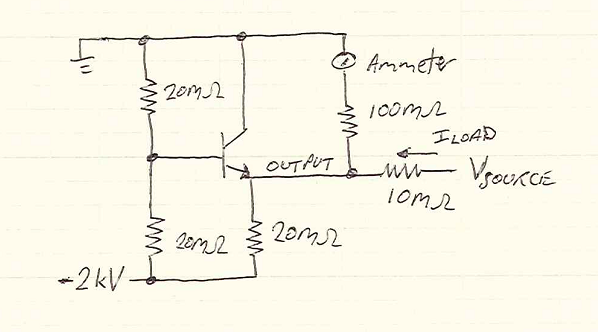 20mΩ
Ammeter
100mΩ
ILOAD
OUTPUT
VSOURCE
10mΩ
20mΩ
20mΩ
-2kV